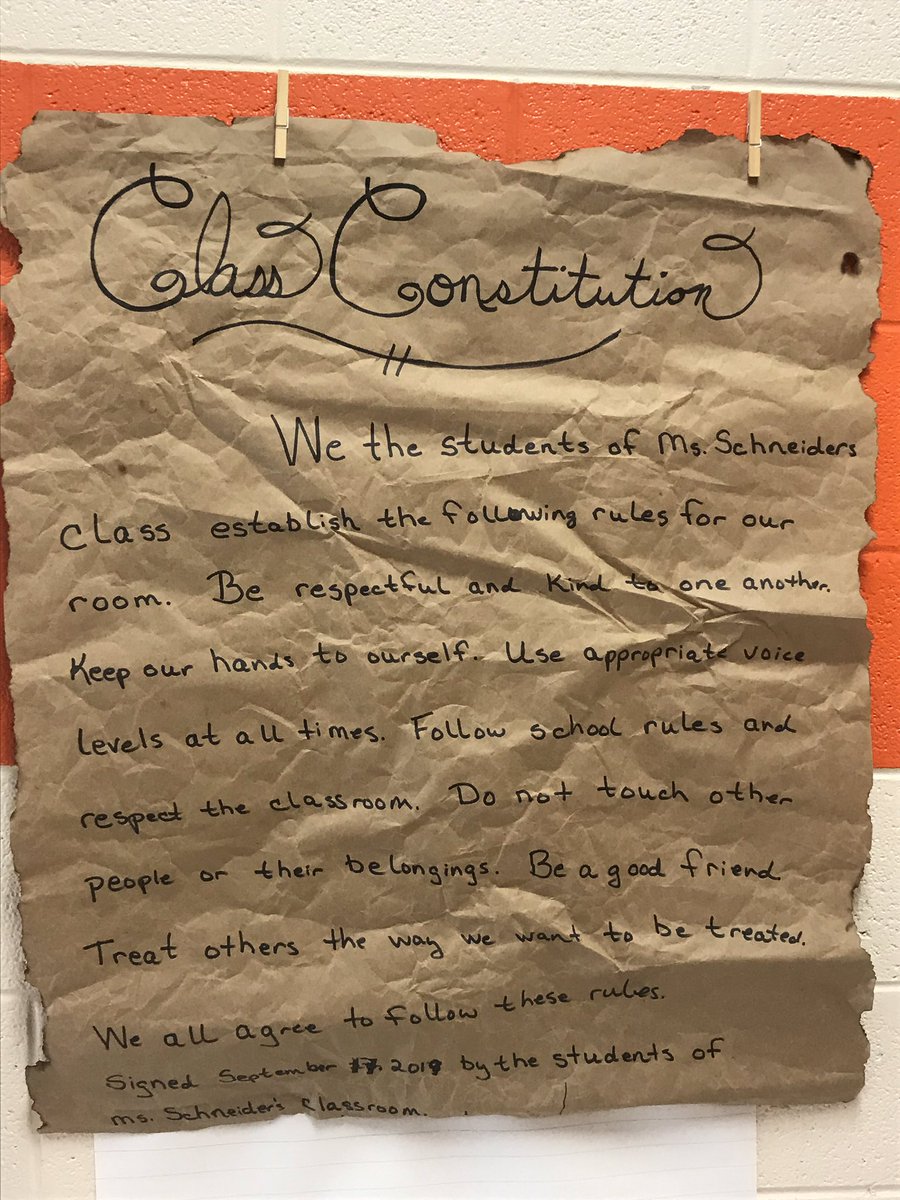 Class Constitution
We the students of Ms. Schneiders
class establish the following rules for our
room. Be respectful and kind to one another.
Keep our hands to ourself. Use appropriate voice
levels at all times. Follow school rules and
respect the classroom. Do not touch other
people or their belongings. Be a good friend
Treat others the way we want to be treated.
We all agree to follow these rules.
Signed September 17, 2019 by the students of
Ms. Schneider's classroom.